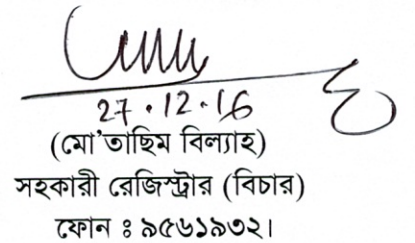 27.12.16
(মো'তাছিম বিল্যাহ)
সহকারী রেজিস্ট্রার (বিচার)
ফোন ঃ ৯৫৬১৯৩২।